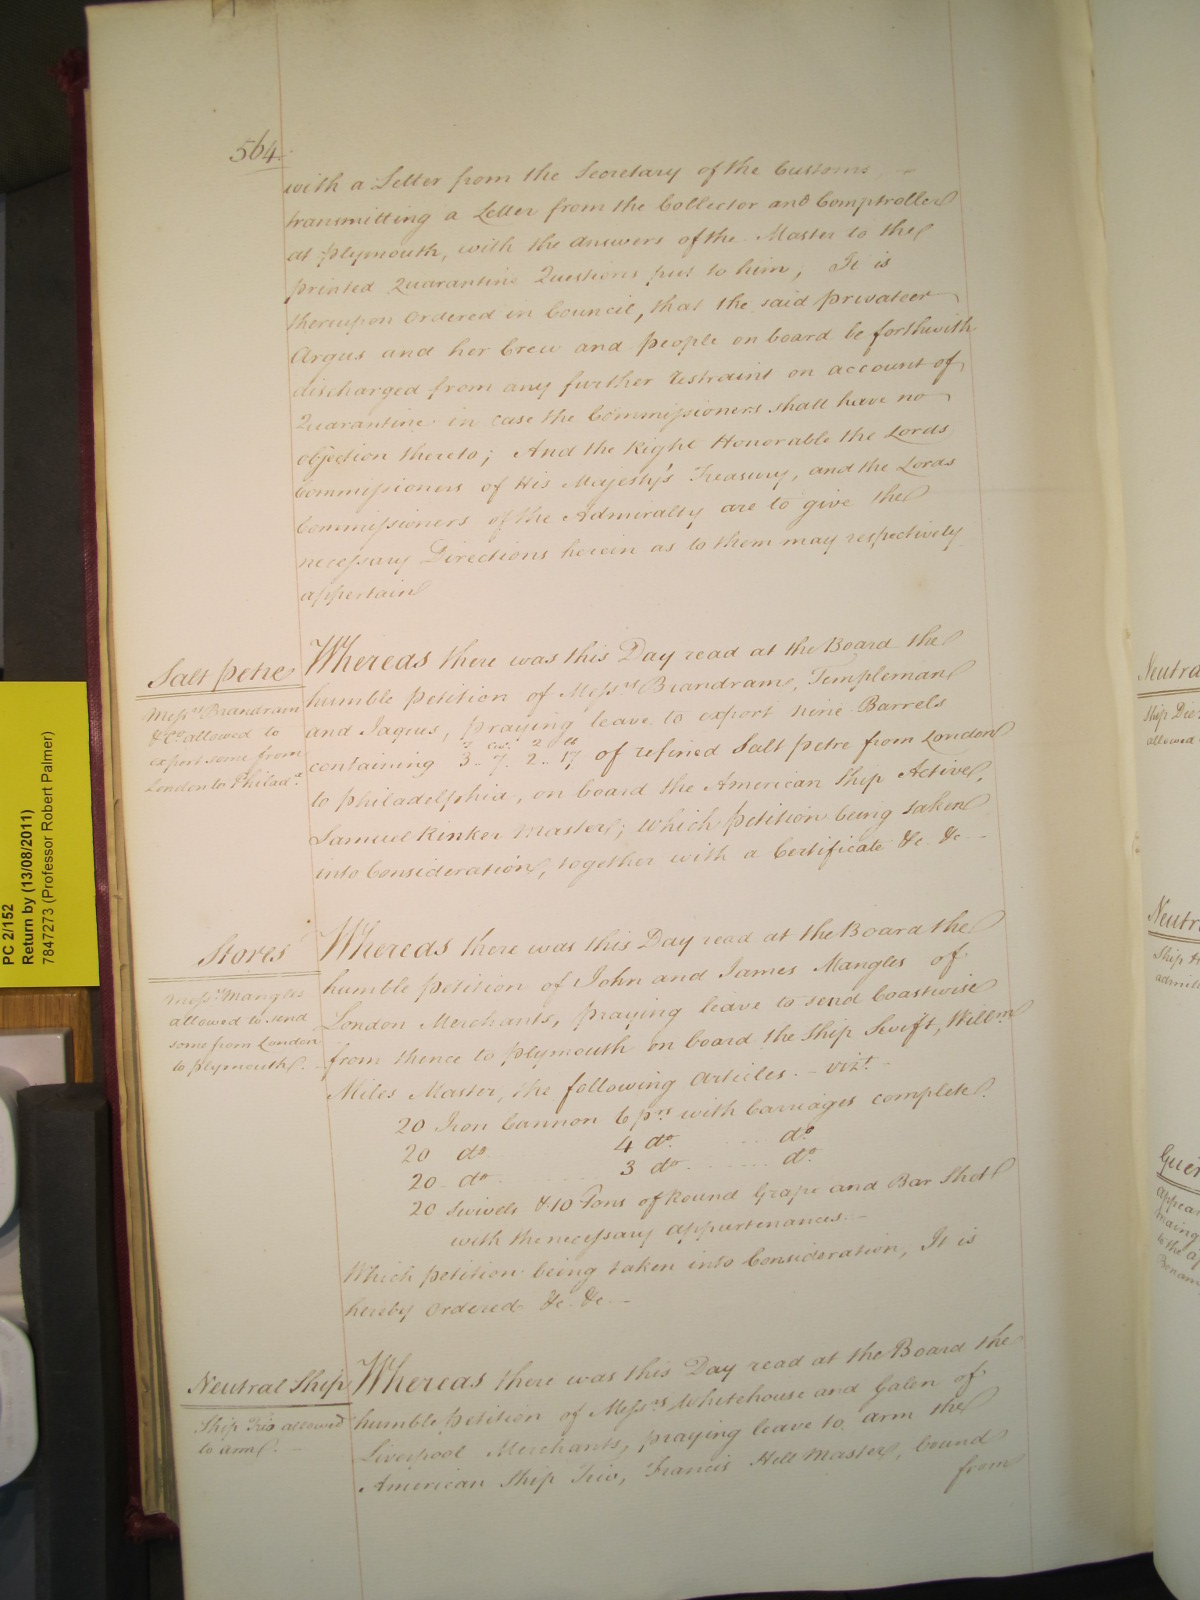 564.
with a Letter from the Secretary of the Customs
transmitting a Letter from the Collector and Comptroller
at Plymouth, with the Answers of the Master to the
printed Quarantine Questions put to him, It is
thereupon Ordered in Council, that the said privateer
Argus and her Crew and People on board be forthwith
discharged from any further restraint on account of
Quarantine in case the Commissioners shall have no
objection thereto; And the Right Honorable the Lords
Commissioners of His Majesty's Treasury, and the Lords
Commissioners of the Admiralty are to give the
necessary Directions herein as to them may respectively
appertain
Salt petre
Messrs Brandram
& Co. allowed to
export some from
London to Philada.
Whereas there was this Day read at the Board the
humble Petition of Messrs Brandram, Templeman
and Jaques, praying leave to export nine Barrels
containing 3.. 7. 2.. 17 of refined Salt petre from London
to Philadelphia, on board the American Ship Active,
Samuel Rinker Master; Which Petition being taken
into Consideration, together with a Certificate &c. &c
Stores
Messrs Mangles
allowed to send
some from London
to Plymouth.
Whereas there was this Day read at the Board the
humble Petition of John and James Mangles of
London Merchants, praying leave to send Coastwise
from thence to Plymouth on board the Ship Swift, Willm
Miles Master, the following Articles. - vizt. -
20 Iron Cannon 6 prs with Carriages complete.
20 do. 4 do. do.
20 do. 3 do. do.
20 Swivels & 10 Tons of Round Grape and Bar Shot
with the necessary appurtenances. -
Which Petition being taken into Consideration, It is
hereby Ordered &c. &c. -
Neutral Ship
Ship Trio allowed
to arm. -
Whereas there was this Day read at the Board the
humble Petition of Messrs Whitehouse and Galen of
Liverpool Merchants, praying leave to arm the
American Ship Trio, Francis Hill Master, bound
from
PC 2/152
Return by (13/08/2011)
7847273 (Professor Robert Palmer)
Neutra
Ship Die
allowed
Neutr
Ship
admit
Guer
Appear
to the